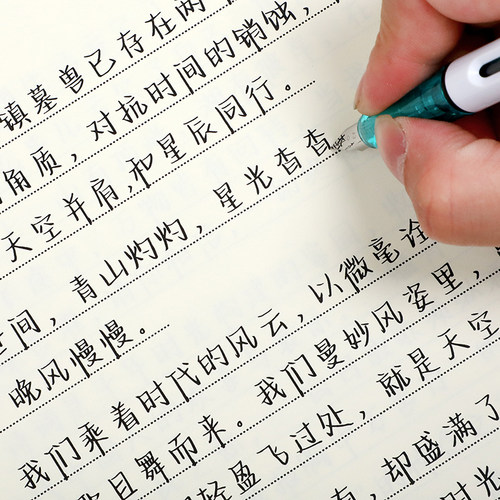 镇墓兽已存在两
角质，对抗时间的销蚀，
天空并肩，和星辰同行。
间，青山灼灼，星光杳杳
晚风慢慢。
我们乘着时代的风云，以微毫诠
且舞而来。我们曼妙风姿里，
轻盈飞过处，就是天空
，却盛满了
时光